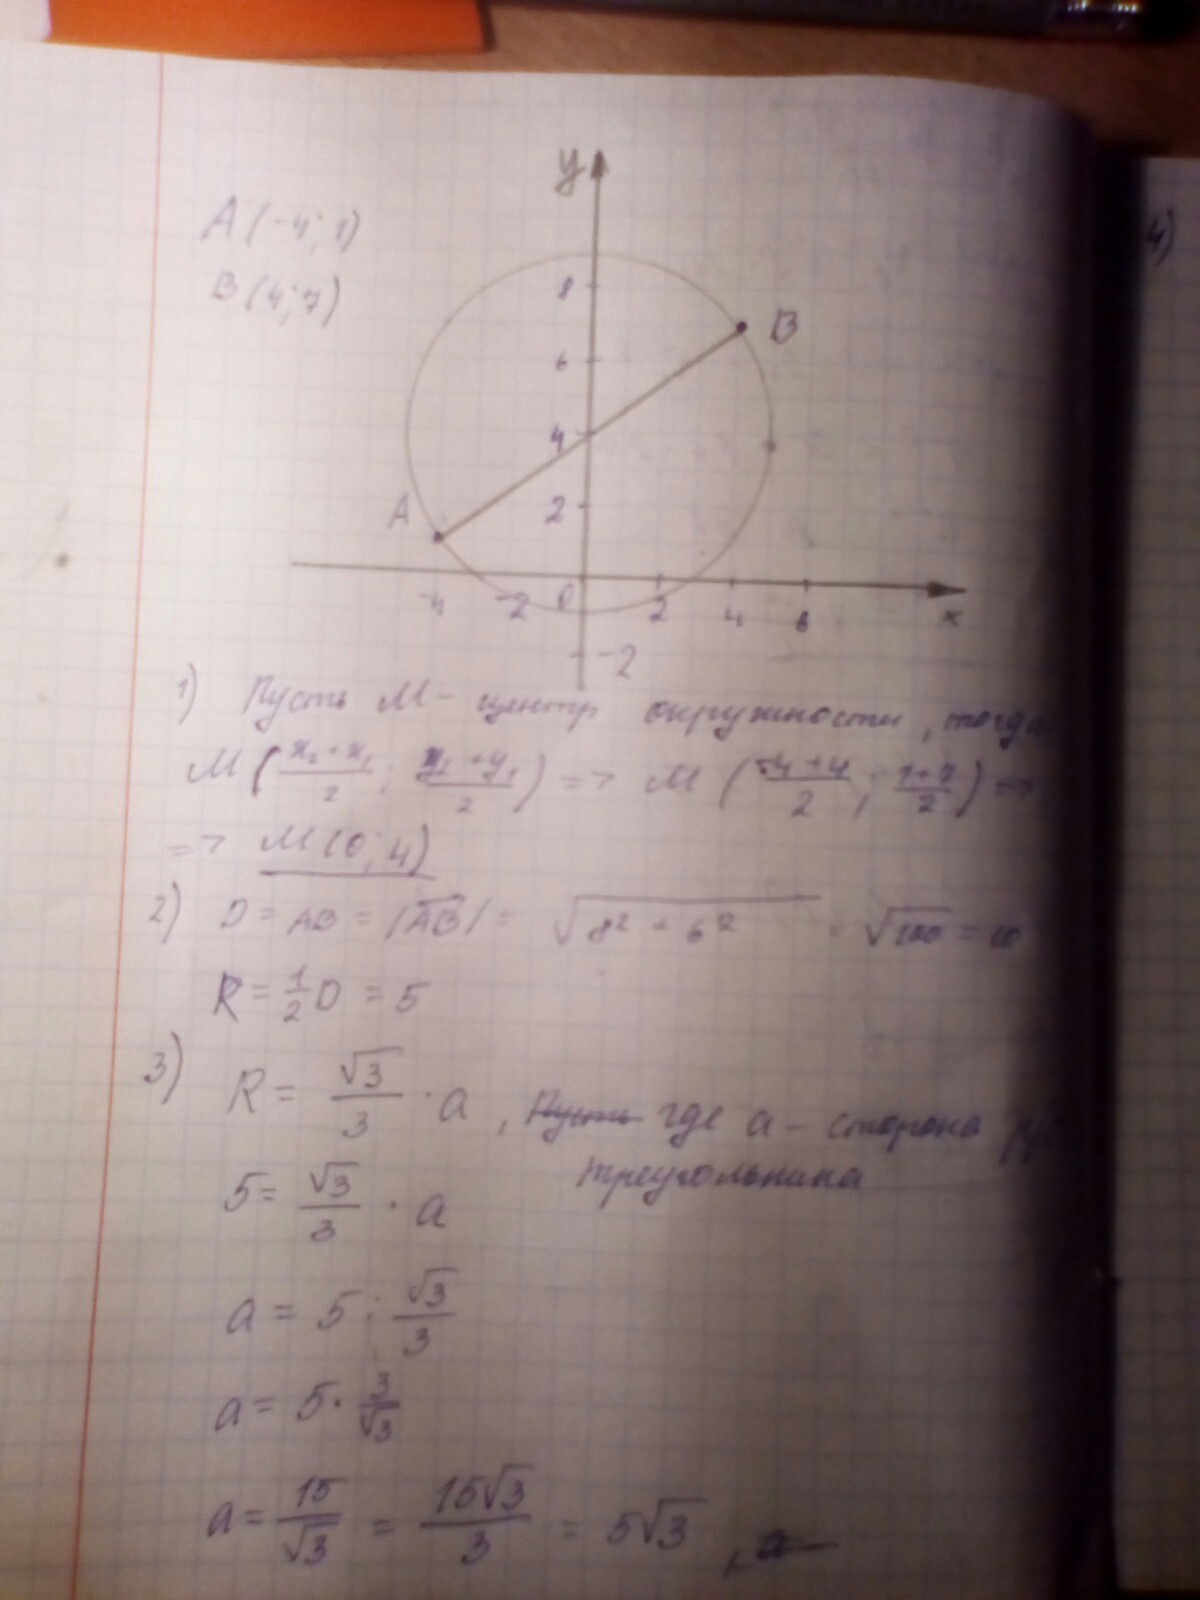 y
A(-4; 1)
B(4; 7)
4)
8
B
6
4
A
2
-4 -2 0 2 4 6
x
-2
1) Пусть M - центр окружности, тогда
M(x₂+x₁/2; y₂+y₁/2) => M(-4+4/2; 1+7/2) =>
=> M(0; 4)
2) D = AB = |AB| = √8² + 6² = √100 = 10
R = 1/2 D = 5
3) R = √3/3 · a, Пусть где a - сторона
треугольника
5 = √3/3 · a
a = 5 : √3/3
a = 5 · 3/√3
a = 15/√3 = 15√3/3 = 5√3,